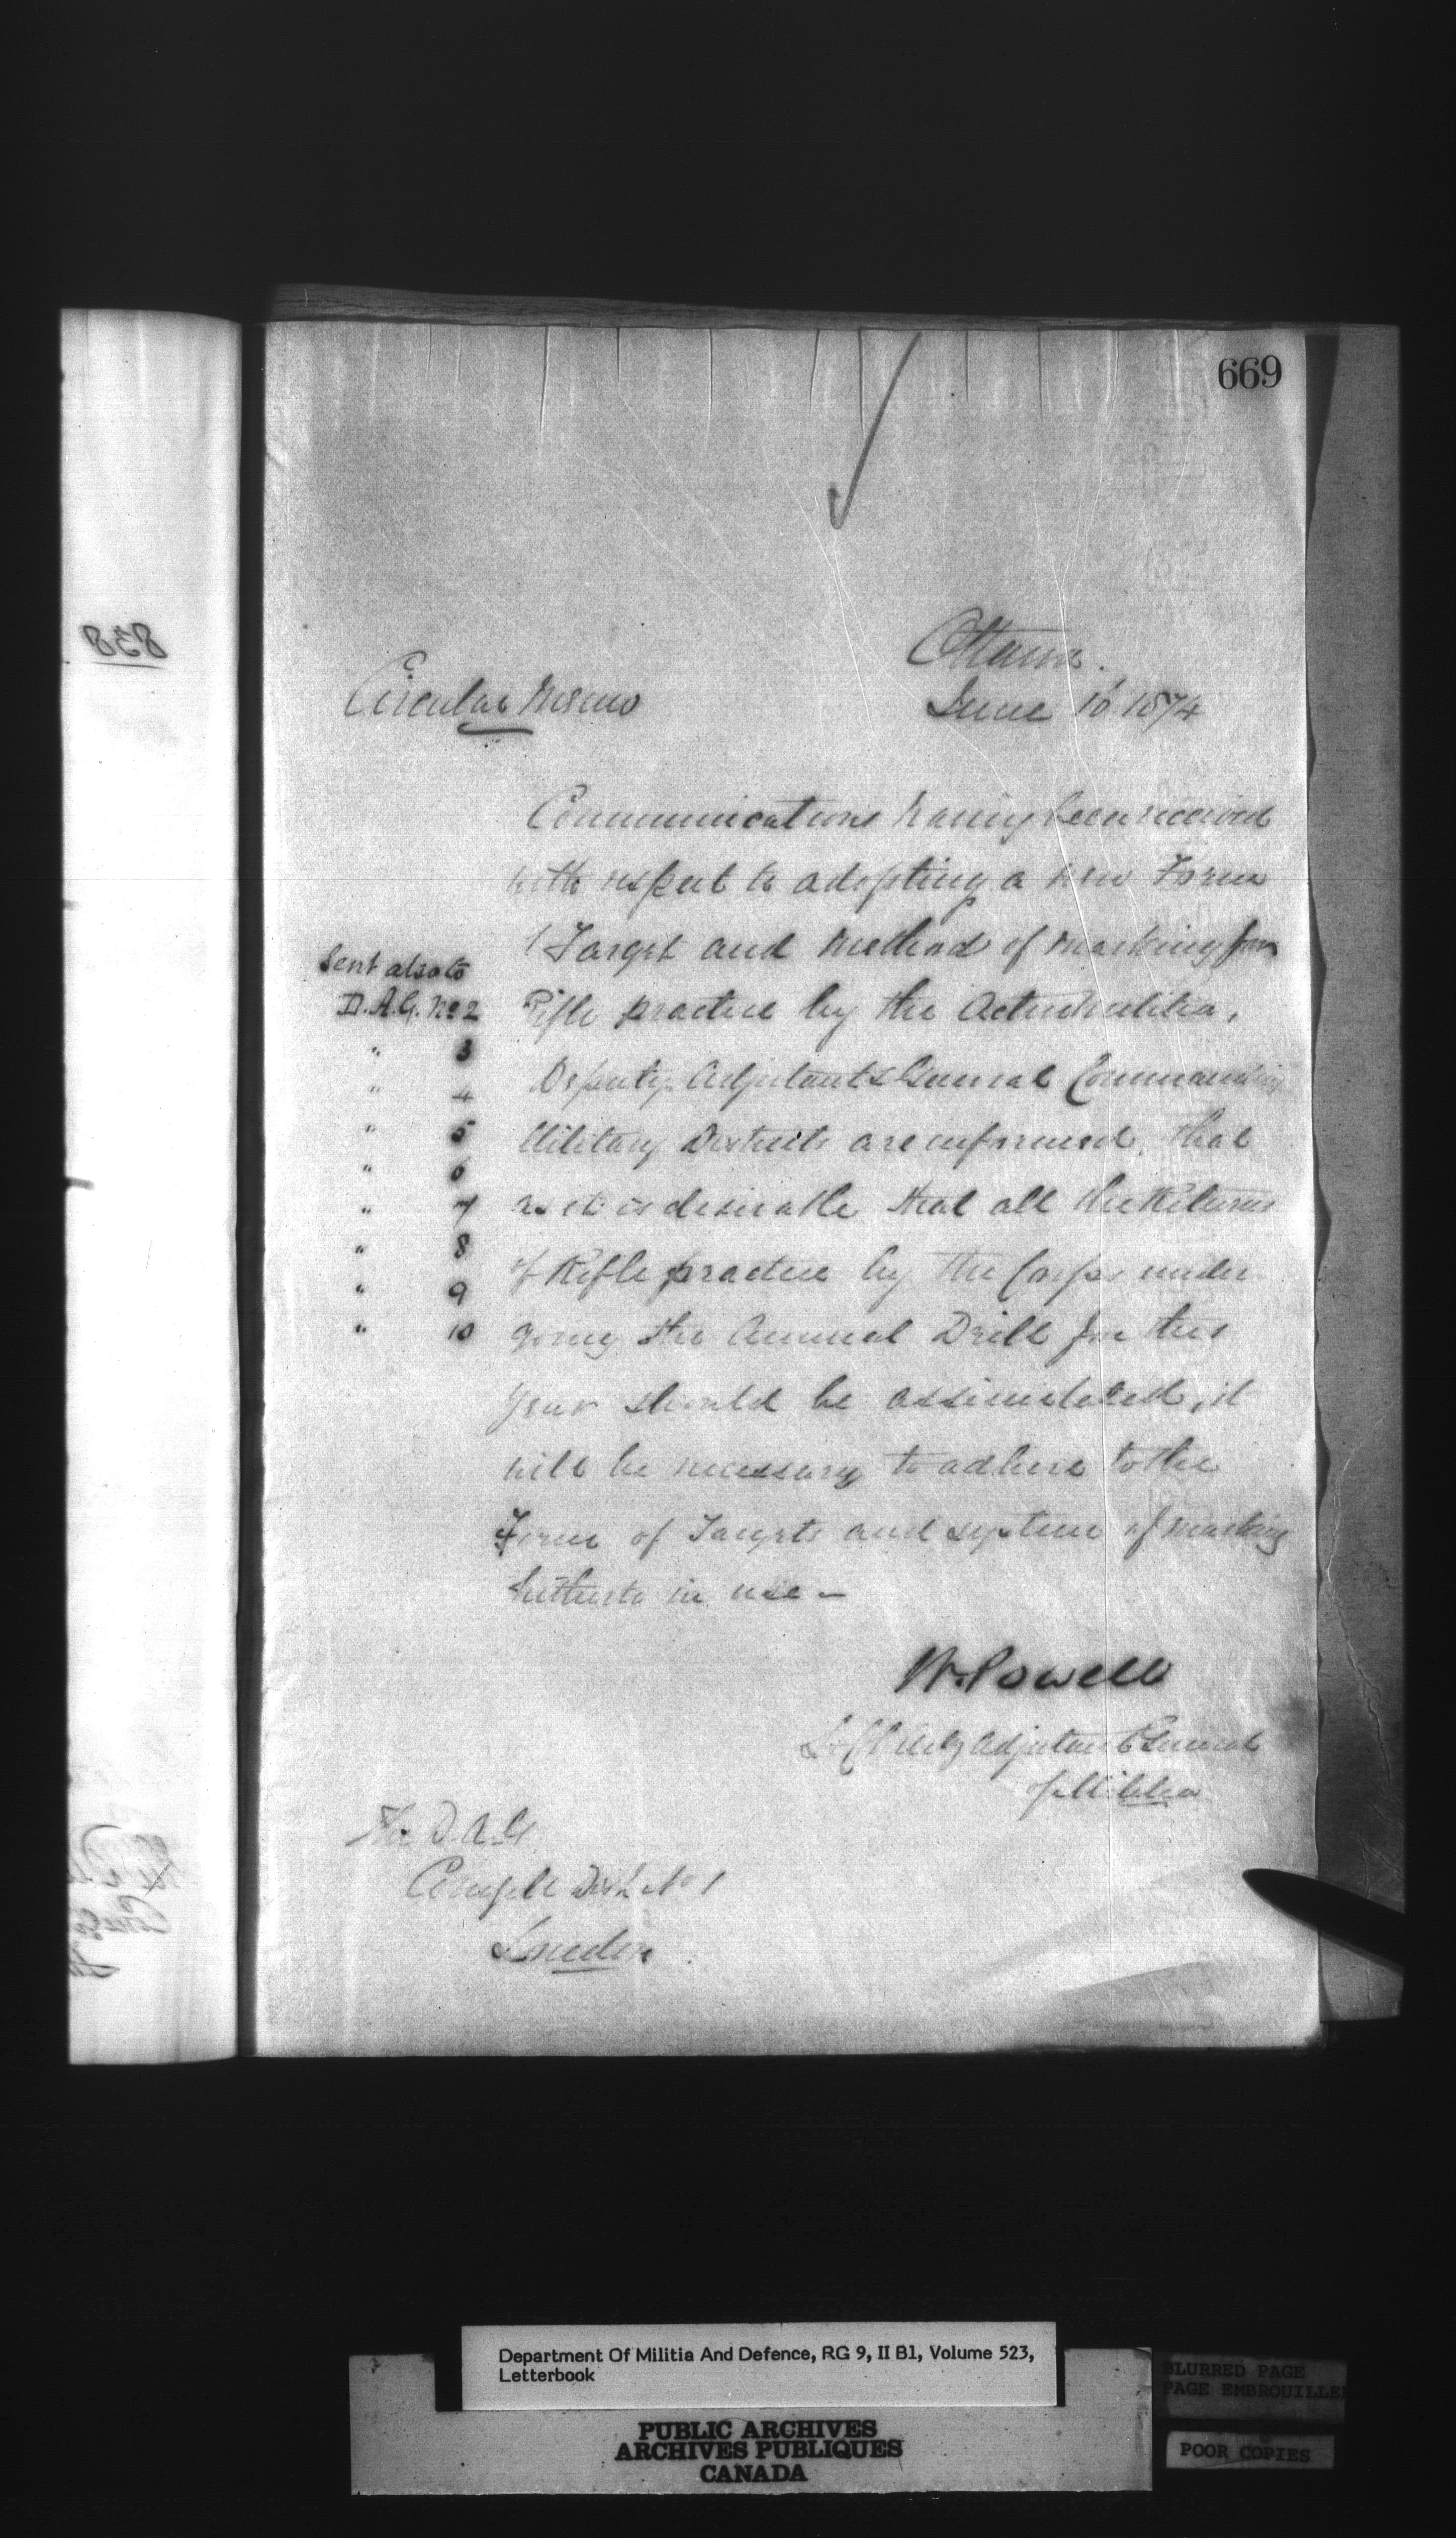 669
Ottawa.
Circular Memo
June 10 1874
Communications having been received
with respect to adopting a new Form
/ Target and method of marking for
Rifle practice by the Active Militia,
Deputy Adjutants General Commanding
Military Districts are informed, that
as it is desirable that all the Returns
of Rifle practice by the Corps under
going the Annual Drill for this
year should be assimilated, it
will be necessary to adhere to the
Form of Targets and system of marking
hitherto in use -
Sent also to
D.A.G. No 2
" 3
" 4
" 5
" 6
" 7
" 8
" 9
" 10
W. Powell
Lt Col Actg Adjutant General
of Militia
The D.A.G
Comg Mil Dist No 1
London
Department Of Militia And Defence, RG 9, II B1, Volume 523,
Letterbook
PUBLIC ARCHIVES
ARCHIVES PUBLIQUES
CANADA
BLURRED PAGE
PAGE EMBROUILLEE
POOR COPIES